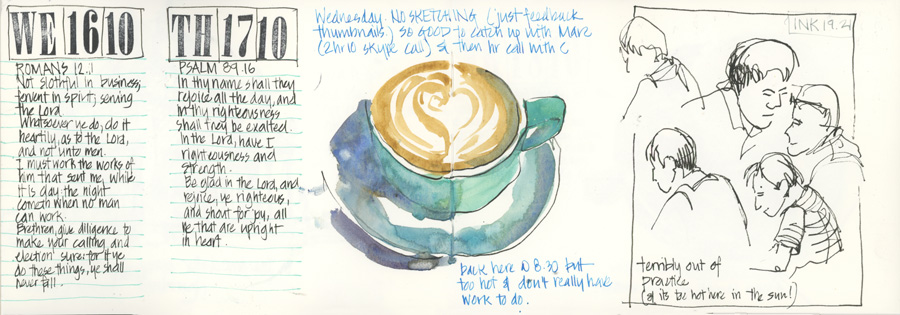 WE 16 10
ROMANS 12..1
Not slothful in business;
fervent in spirit; serving
the Lord
Whatsoever ye do, do it
heartily, as to the Lord,
and not unto men.
I must work the works of
him that sent me, while
it is day: the night
cometh when no man
can work.
Brethren, give diligence to
make your calling and
election sure: for if ye
do these things, ye shall
never fall.
TH 17 10
PSALM 89.16
In thy name shall they
rejoice all the day, and
in thy righteousness
shall they be exalted.
In the Lord, have I
righteousness and
strength.
Be glad in the Lord, and
rejoice, ye righteous,
and shout for joy, all
ye that are upright
in heart.
Wednesday. NO SKETCHING (just feedback
thumbnails) SO GOOD to catch up with Marc
(2hr10 skype call) & then hr call with C
back here @ 8.30 but
too hot & don't really have
work to do.
INK 19.21
terribly out of
practice
(& its too hot here in the sun!)